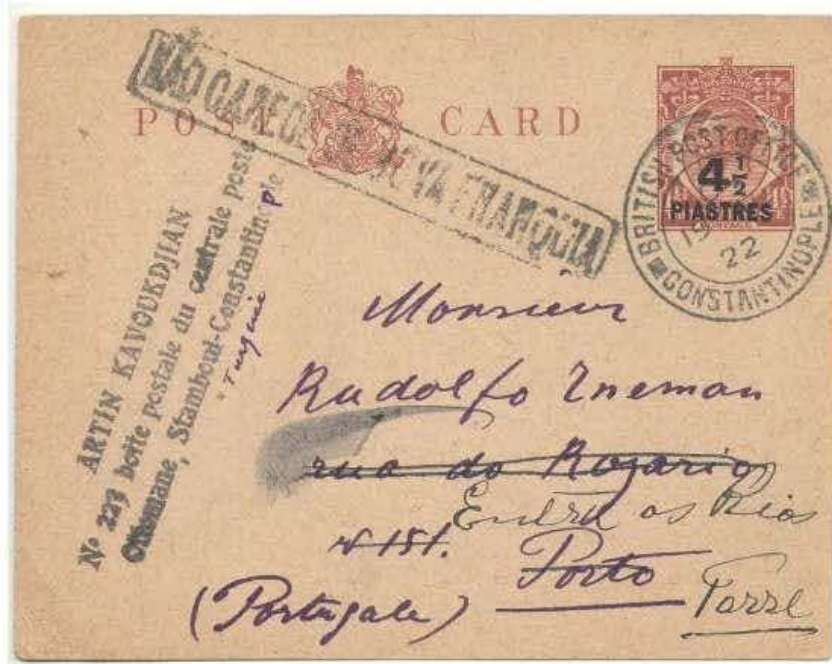 POST CARD
NÃO CARECE DE NOVA FRANQUIA
BRITISH POST OFFICE
CONSTANTINOPLE
22
4 1/2
PIASTRES
ARTIN KAVOUKDJIAN
No 223 boîte postale du centrale poste
Ottomane, Stamboul-Constantinople
Turquie
Monsieur
Rudolfo Ineman
rua do Rozario
No 151.
Entre os Rios
Porto
(Portugale)
Torre